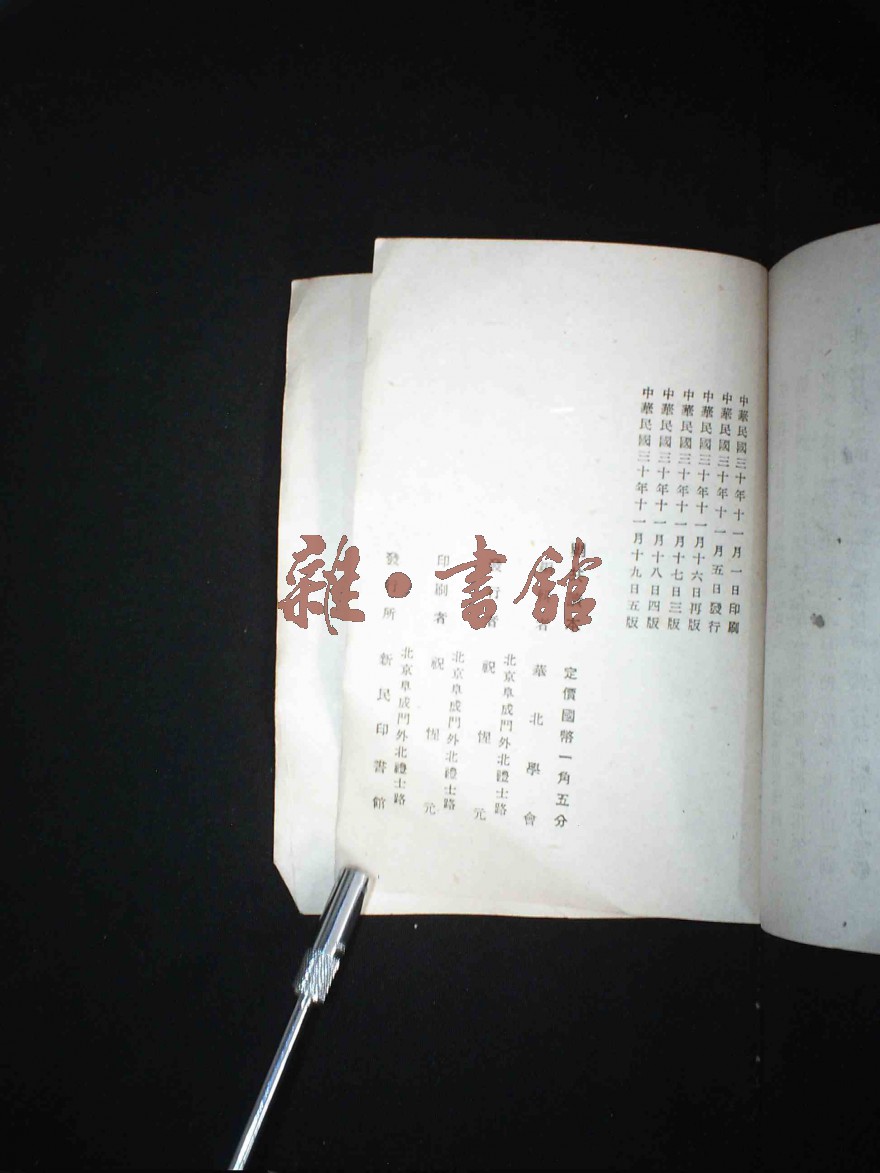 中華民國三十年十一月一日印刷
中華民國三十年十一月五日發行
中華民國三十年十一月十六日再版
中華民國三十年十一月十七日三版
中華民國三十年十一月十八日四版
中華民國三十年十一月十九日五版
定價國幣一角五分
者 華北學會
北京阜成門外北禮士路
發行者 祝惺元
北京阜成門外北禮士路
印刷者 祝惺元
北京阜成門外北禮士路
發行所 新民印書館
雜·書館